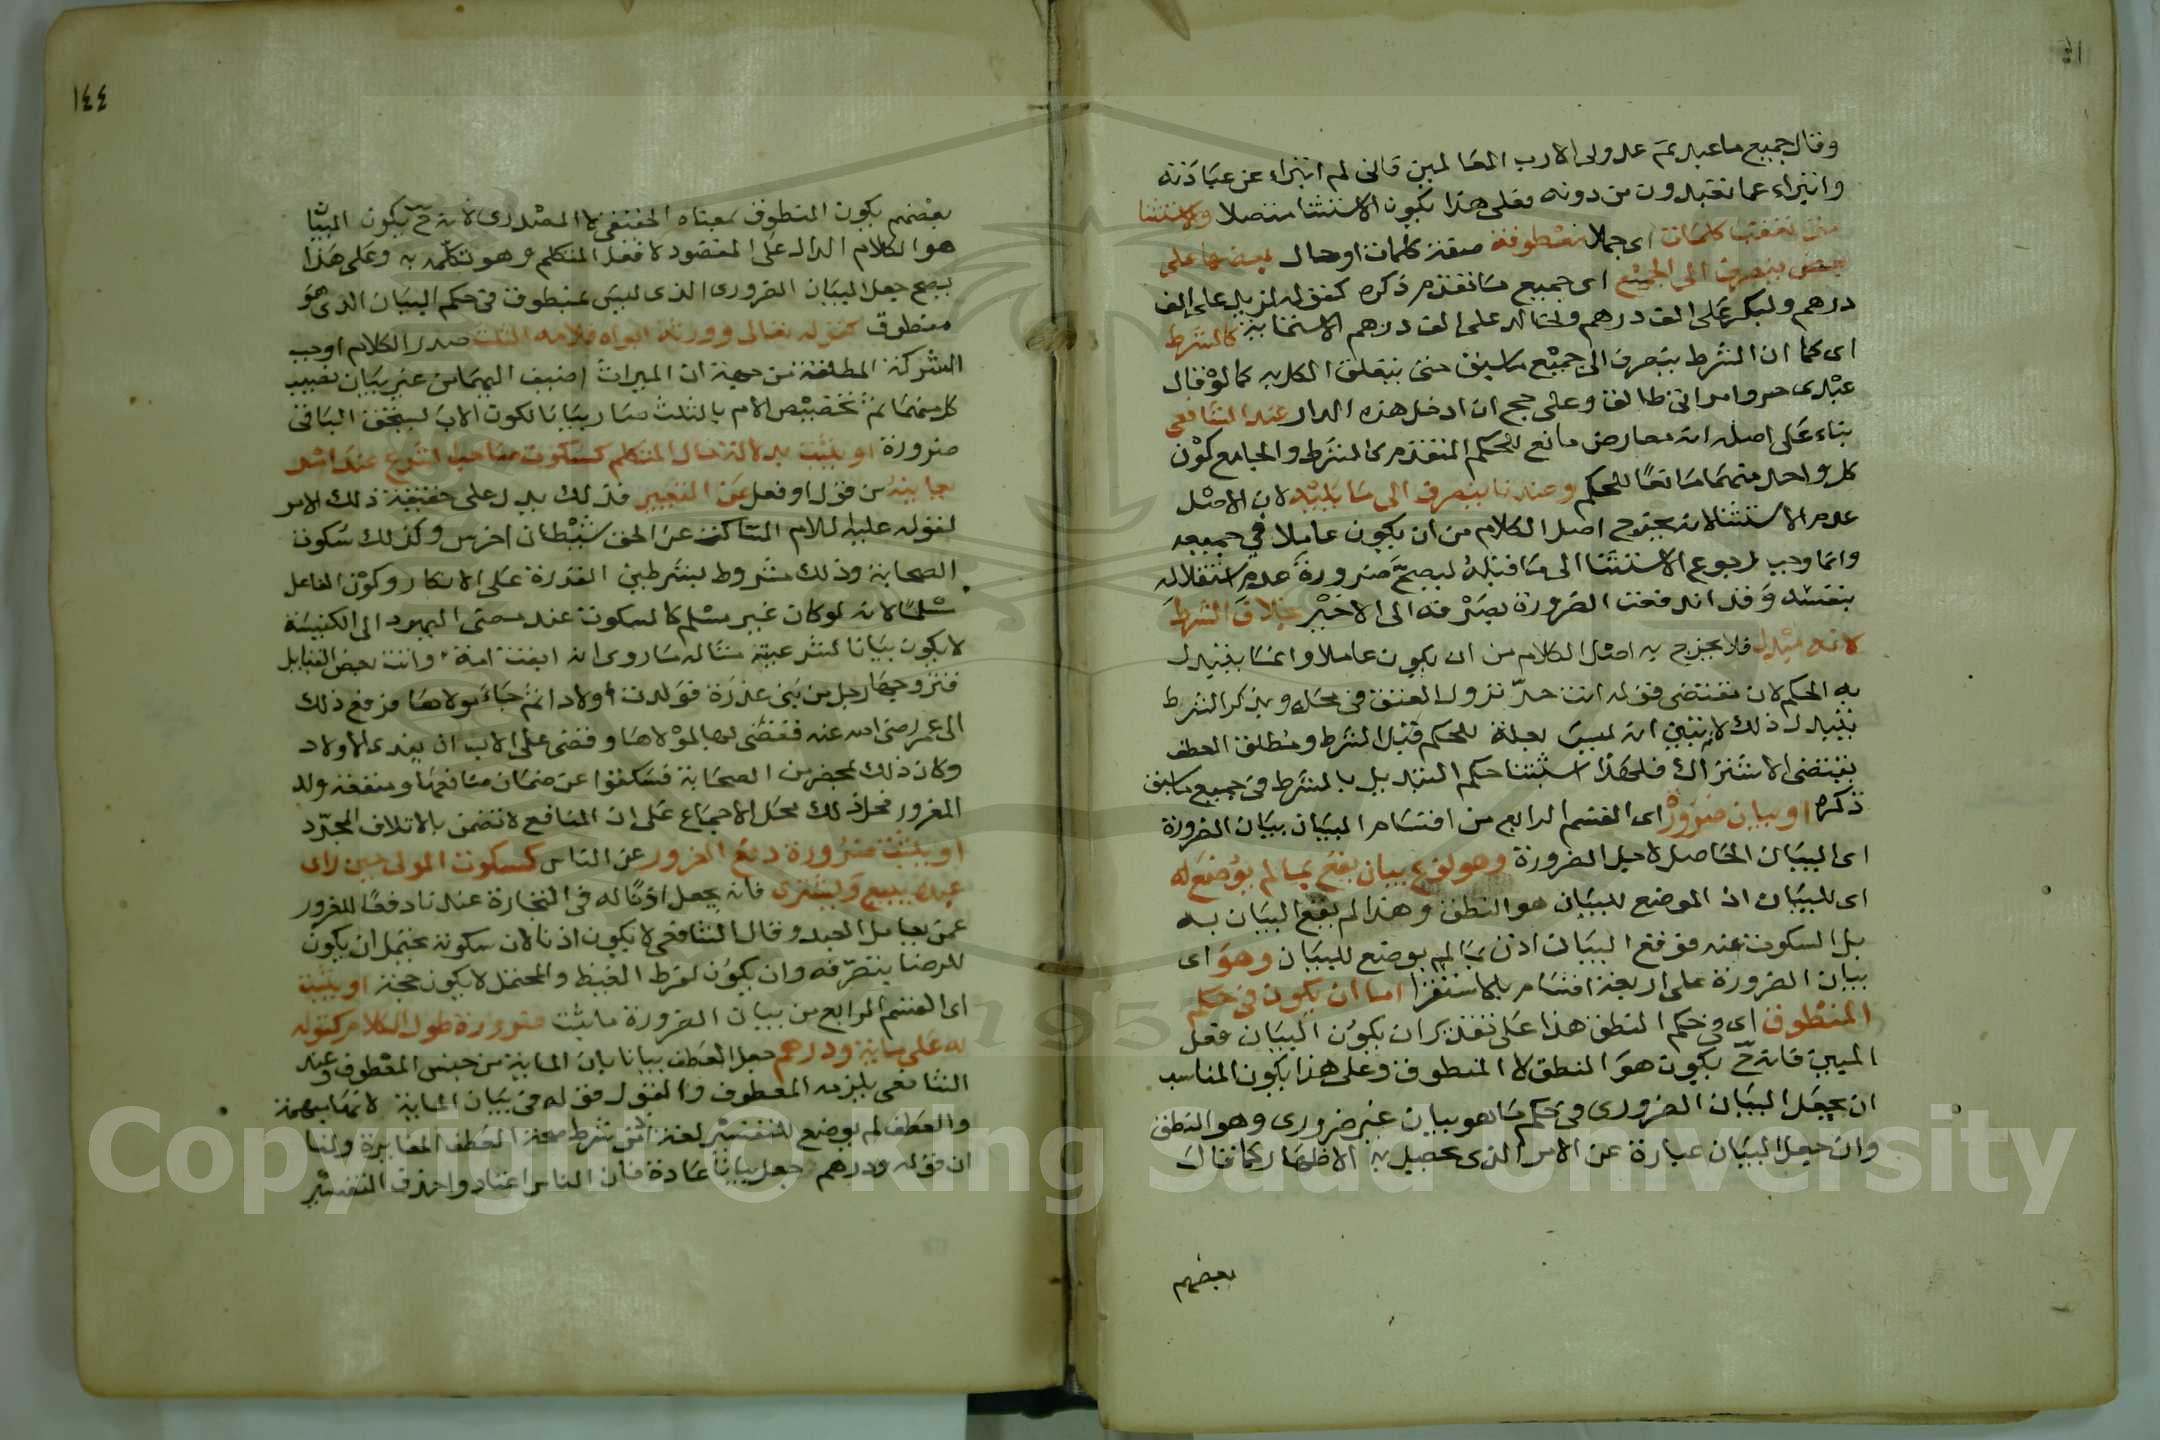 وقال جميع ما عبدتم عدو لى الا رب العالمين فانى لم اتبراء عن عبادته
واتبراء عما تعبدون من دونه فعلى هذا يكون الاستثنا متصلا والاستثنا
متى تعقب كلمات اى جملا معطوفة صفة كلمات او حال بعضها على
بعض ينصرف الى الجميع اى جميع ما تقدم ذكره كقوله لزيد على الف
درهم ولبكر على الف درهم ولخالد على الف درهم الا ستماية كالشرط
اى كما ان الشرط ينصرف الى جميع ما سبق حتى يتعلق الكل به كما لو قال
عبدى حر وامراتى طالق وعلى حج ان ادخل هذه الدار عند الشافعى
بناء على اصله انه معارض مانع للحكم المتقدم كالشرط والجامع كون
كل واحد منهما مانعا للحكم وعندنا ينصرف الى ما يليه لان الاصل
عدم الاستثنا لانه يخرج اصل الكلام من ان يكون عاملا في جميعه
وانما وجب رجوع الاستثنا الى ما قبله ليصح ضرورة عدم استقلاله
بنفسه وقد اندفعت الضرورة بصرفه الى الاخير بخلاف الشرط
لانه مبدل فلا يخرج به اصل الكلام من ان يكون عاملا وانما يتبدل
به الحكم لان مقتضى قوله انت حر نزول العتق فى محله وبذكر الشرط
يتبدل ذلك لانه يتبين انه ليس بعلة للحكم قبل الشرط ومطلق العطف
يقتضى الاشتراك فلهذا اثبتنا حكم التبديل بالشرط فى جميع ما سبق
ذكره او بيان ضرورة اى القسم الرابع من اقسام البيان بيان الضرورة
اى البيان الحاصل لاجل الضرورة وهو نوع بيان يقع بما لم يوضع له
اى للبيان اذ الموضع للبيان هو النطق وهذا لم يقع البيان به
بل السكوت عنه فوقع البيان اذن بما لم يوضع للبيان وهو اى
بيان الضرورة على اربعة اقسام بالاستقرا اما ان يكون فى حكم
المنطوق اى فى حكم النطق هذا على تقدير ان يكون البيان فعل
المبين فانه ح يكون هو النطق لا المنطوق وعلى هذا يكون المناسب
ان يجعل البيان الضرورى فى حكم ما هو بيان غير ضرورى وهو النطق
وان جعل البيان عبارة عن الامر الذى يحصل به الاظهار كما قال
بعضهم
١٤٤
بعضهم يكون المنطوق بمعناه الحقيقى لا المصدرى لانه ح يكون البيان
هو الكلام الدال على المقصود لا فعل المتكلم وهو تكلمه به وعلى هذا
يصح جعل البيان الضرورى الذى ليس بمنطوق فى حكم البيان الذى هو
منطوق كقوله تعالى وورثه ابواه فلامه الثلث صدر الكلام اوجب
الشركة المطلقة من حيث ان الميراث اضيف اليهما من غير بيان نصيب
كل منهما ثم تخصيص الام بالثلث صار بيانا لكون الاب يستحق الباقى
ضرورة او يثبت بدلالة حال المتكلم كسكوت صاحب الشرع عند امر
يعاينه من قول او فعل عن التغيير فذلك يدل على حقيقة ذلك الامر
لقوله عليه السلام الساكت عن الحق شيطان اخرس وكذلك سكوت
الصحابة وذلك مشروط بشرطين القدرة على الانكار وكون الفاعل
مسلما لانه لو كان غير مسلم كالسكوت عند مضى اليهود الى الكنيسة
لا يكون بيانا لشرعيته مثاله ما روى انه ابقت امة واتت بعض القبايل
فتزوجها رجل من بنى عذرة فولدت اولادا ثم جاء مولاها فرفع ذلك
الى عمر رضى الله عنه فقضى بها لمولاها وقضى على الاب ان يفدى الاولاد
وكان ذلك بمحضر من الصحابة فسكتوا عن ضمان منافعها ومنفعة ولد
المغرور فحل ذلك محل الاجماع على ان المنافع لا تضمن بالاتلاف المجرد
او يثبت ضرورة دفع الغرور عن الناس كسكوت المولى حين راى
عبده يبيع ويشترى فانه يجعل اذنا له فى التجارة عندنا دفعا للغرور
عمن يعامل العبد وقال الشافعى لا يكون اذنا لان سكوته يحتمل ان يكون
للرضا بتصرفه وان يكون لفرط الغيظ والمحتمل لا يكون حجة او يثبت
اى القسم الرابع من بيان الضرورة ما يثبت ضرورة طول الكلام كقوله
له على ماية ودرهم جعل العطف بيانا بان الماية من جنس المعطوف وعند
الشافعى يلزمه المعطوف والقول قوله فى بيان الماية لانها مبهمة
والعطف لم يوضع للتفسير لغة اذ من شرط صحة العطف المغايرة ولنا
ان قوله ودرهم جعل بيانا عادة فان الناس اعتادوا حذف التفسير
Copyright © King Saud University
195